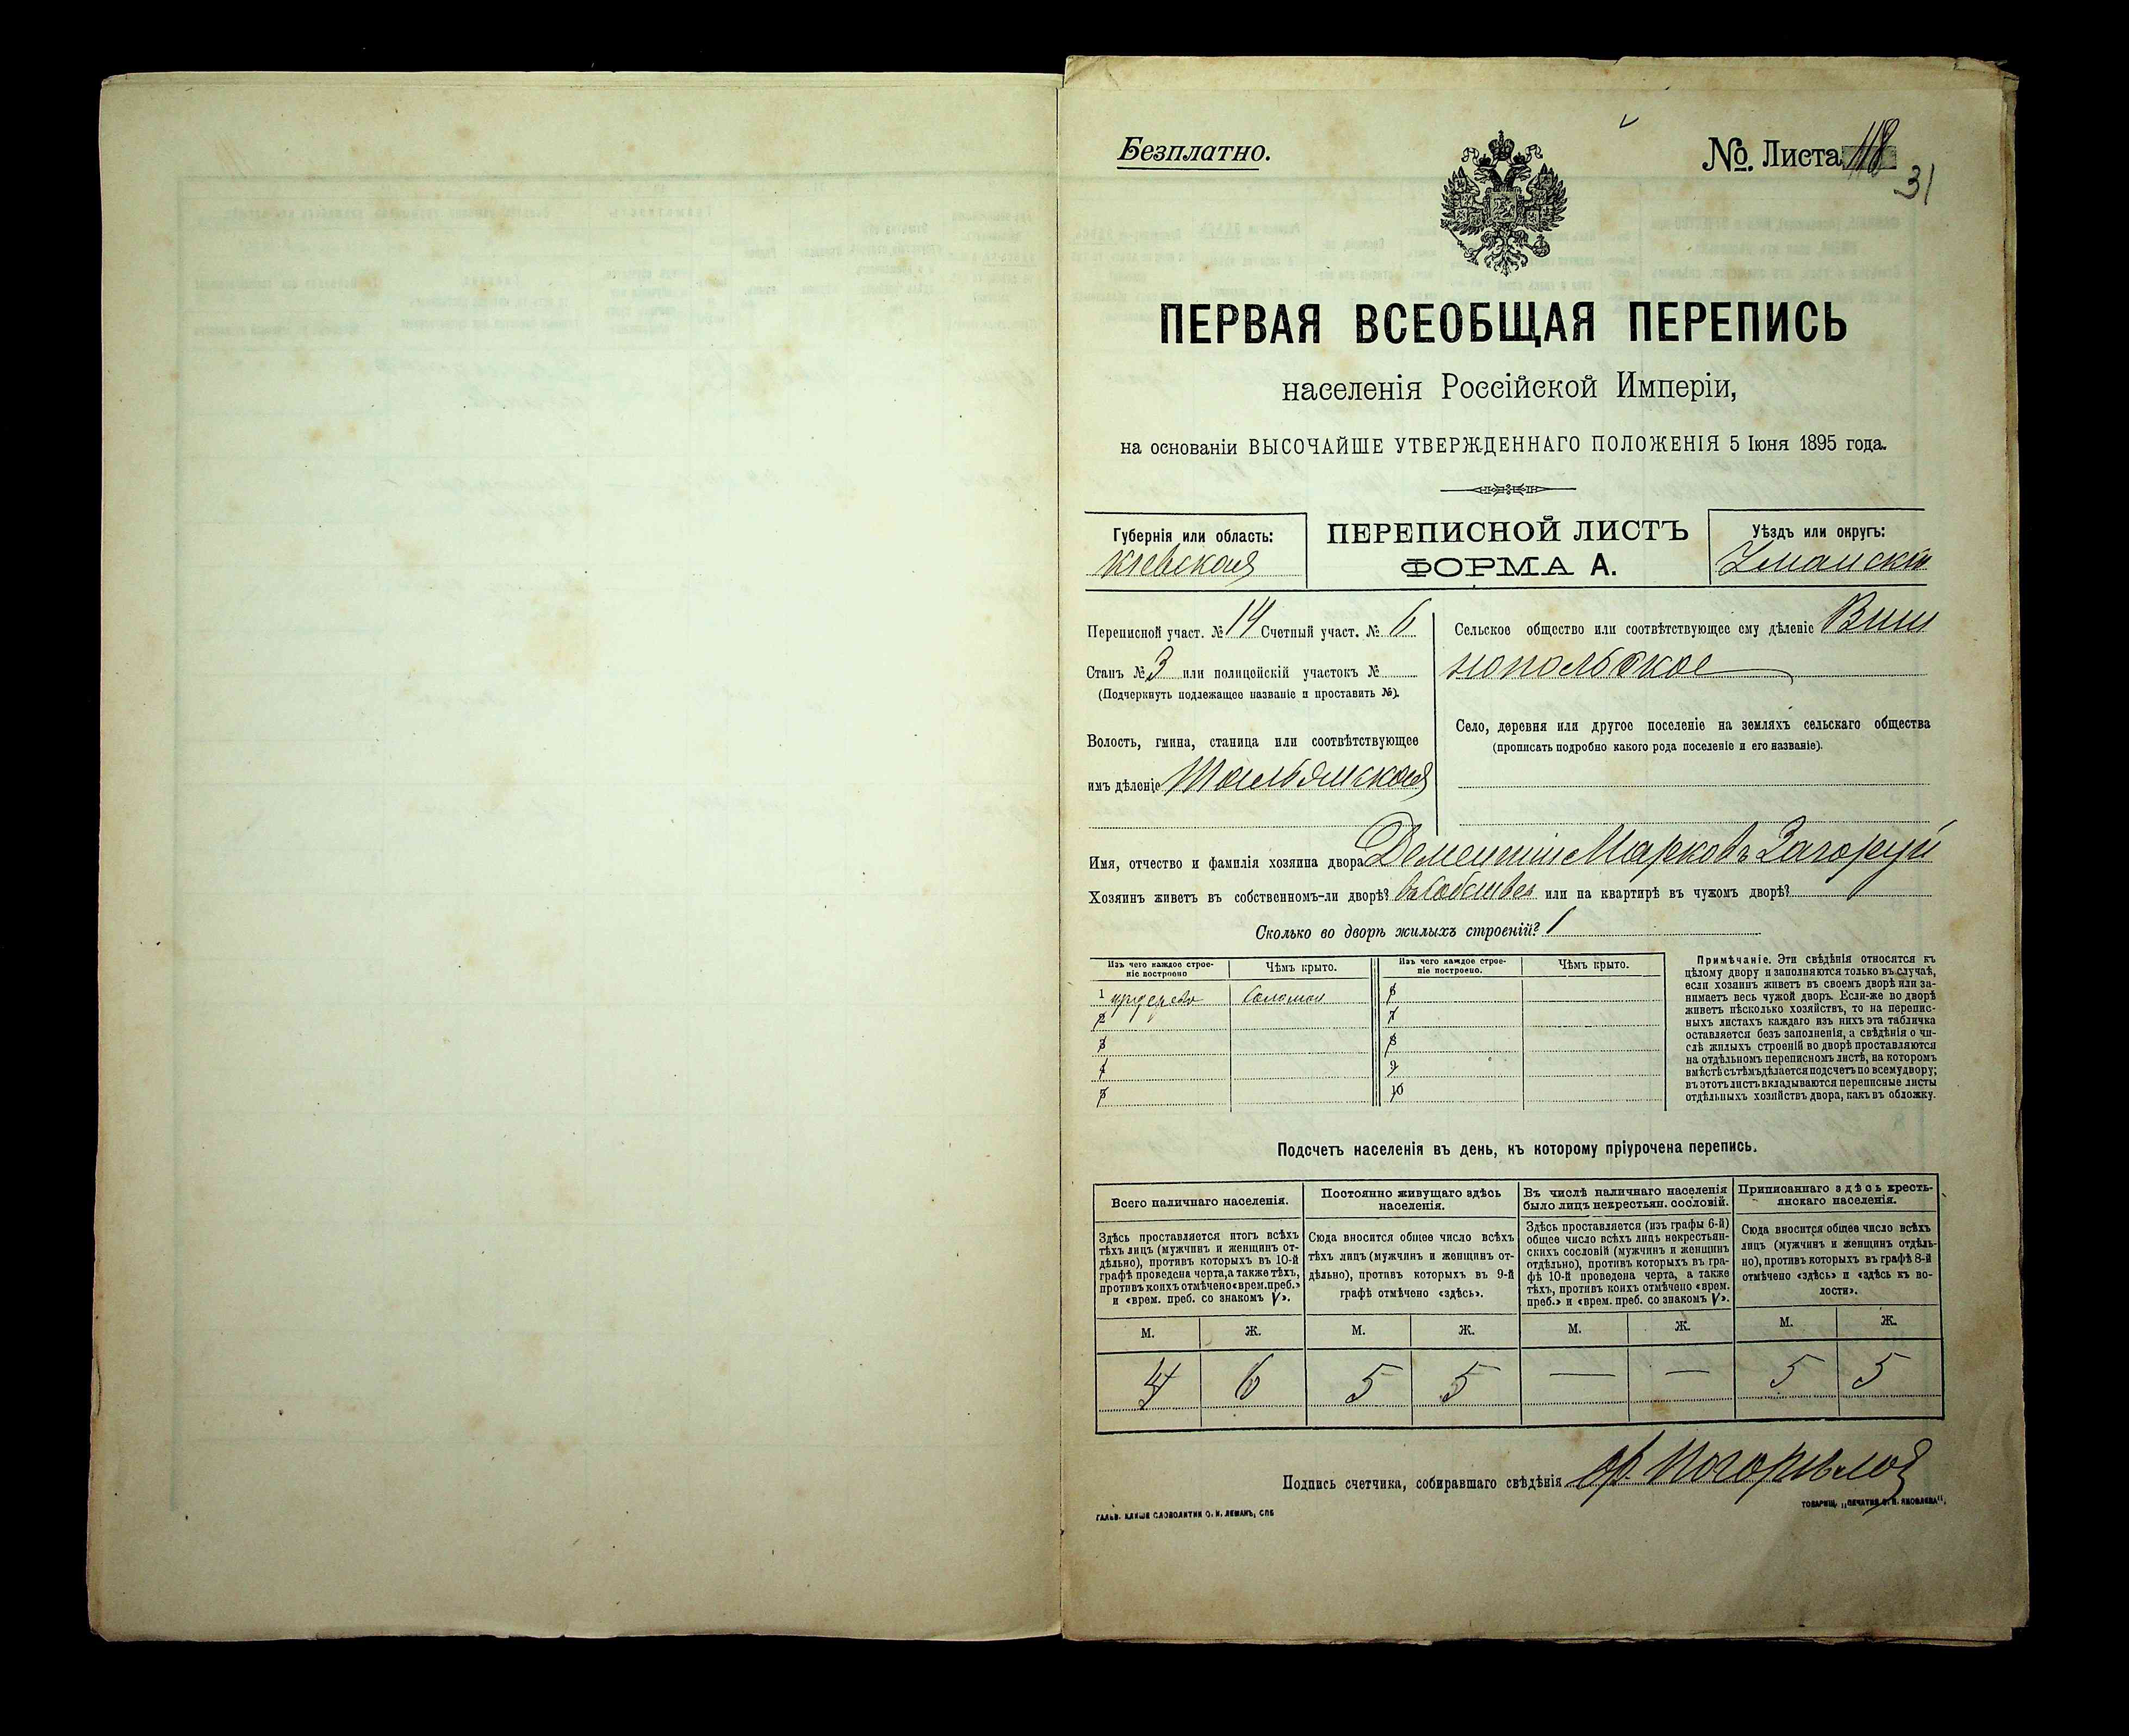 Безплатно.
№. Листа 118
31
ПЕРВАЯ ВСЕОБЩАЯ ПЕРЕПИСЬ
населенія Россійской Имперіи,
на основаніи ВЫСОЧАЙШЕ УТВЕРЖДЕННАГО ПОЛОЖЕНІЯ 5 Іюня 1895 года.
Губернія или область:
Кіевская
ПЕРЕПИСНОЙ ЛИСТЪ
ФОРМА А.
Уѣздъ или округъ:
Уманскій
Переписной участ. № 14 Счетный участ. № 6
Станъ № 3 или полицейскій участокъ №
(Подчеркнуть подлежащее названіе и проставить №).
Волость, гмина, станица или соотвѣтствующее
имъ дѣленіе Тальянская
Сельское общество или соотвѣтствующее ему дѣленіе Виш
нопольское
Село, деревня или другое поселеніе на земляхъ сельскаго общества
(прописать подробно какого рода поселеніе и его названіе).
Имя, отчество и фамилія хозяина двора Дементій Марковъ Загоруй
Хозяинъ живетъ въ собственномъ-ли дворѣ? или на квартирѣ въ чужомъ дворѣ?
Сколько во дворѣ жилыхъ строеній? 1
Изъ чего каждое строе-
ніе построено
Чѣмъ крыто.
Изъ чего каждое строе-
ніе построено.
Чѣмъ крыто.
1 Соломой
2
3
4
5
6
7
8
9
10
Примѣчаніе. Эти свѣдѣнія относятся къ
цѣлому двору и заполняются только въ случаѣ,
если хозяинъ живетъ въ своемъ дворѣ или за-
нимаетъ весь чужой дворъ. Если-же во дворѣ
живетъ нѣсколько хозяйствъ, то на перепис-
ныхъ листахъ каждаго изъ нихъ эта табличка
оставляется безъ заполненія, а свѣдѣнія о чи-
слѣ жилыхъ строеній во дворѣ проставляются
на отдѣльномъ переписномъ листѣ, на которомъ
вмѣстѣ съ тѣмъ дѣлается подсчетъ по всему двору;
въ этотъ листъ вкладываются переписные листы
отдѣльныхъ хозяйствъ двора, какъ въ обложку.
Подсчетъ населенія въ день, къ которому пріурочена перепись.
Всего наличнаго населенія.
Здѣсь проставляется итогъ всѣхъ
тѣхъ лицъ (мужчинъ и женщинъ от-
дѣльно), противъ которыхъ въ 10-й
графѣ проведена черта, а также тѣхъ,
противъ коихъ отмѣчено «врем. преб.»
и «врем. преб. со знакомъ V».
Постоянно живущаго здѣсь
населенія.
Сюда вносится общее число всѣхъ
тѣхъ лицъ (мужчинъ и женщинъ от-
дѣльно), противъ которыхъ въ 9-й
графѣ отмѣчено «здѣсь».
Въ числѣ наличнаго населенія
было лицъ некрестьян. сословій.
Здѣсь проставляется (изъ графы 6-й)
общее число всѣхъ лицъ некрестьян-
скихъ сословій (мужчинъ и женщинъ
отдѣльно), противъ которыхъ въ гра-
фѣ 10-й проведена черта, а также
тѣхъ, противъ коихъ отмѣчено «врем.
преб.» и «врем. преб. со знакомъ V».
Приписаннаго здѣсь кресть-
янскаго населенія.
Сюда вносится общее число всѣхъ
лицъ (мужчинъ и женщинъ отдѣль-
но), противъ которыхъ въ графѣ 8-й
отмѣчено «здѣсь» и «здѣсь къ во-
лости».
М. Ж. М. Ж. М. Ж. М. Ж.
4 6 5 5 — — 5 5
Подпись счетчика, собиравшаго свѣдѣнія
ГАЛЬВ. КЛИШЕ СЛОВОЛИТНИ О. И. ЛЕМАНЪ, СПБ
ТОВАРИЩ. „ПЕЧАТНЯ С. П. ЯКОВЛЕВА“.